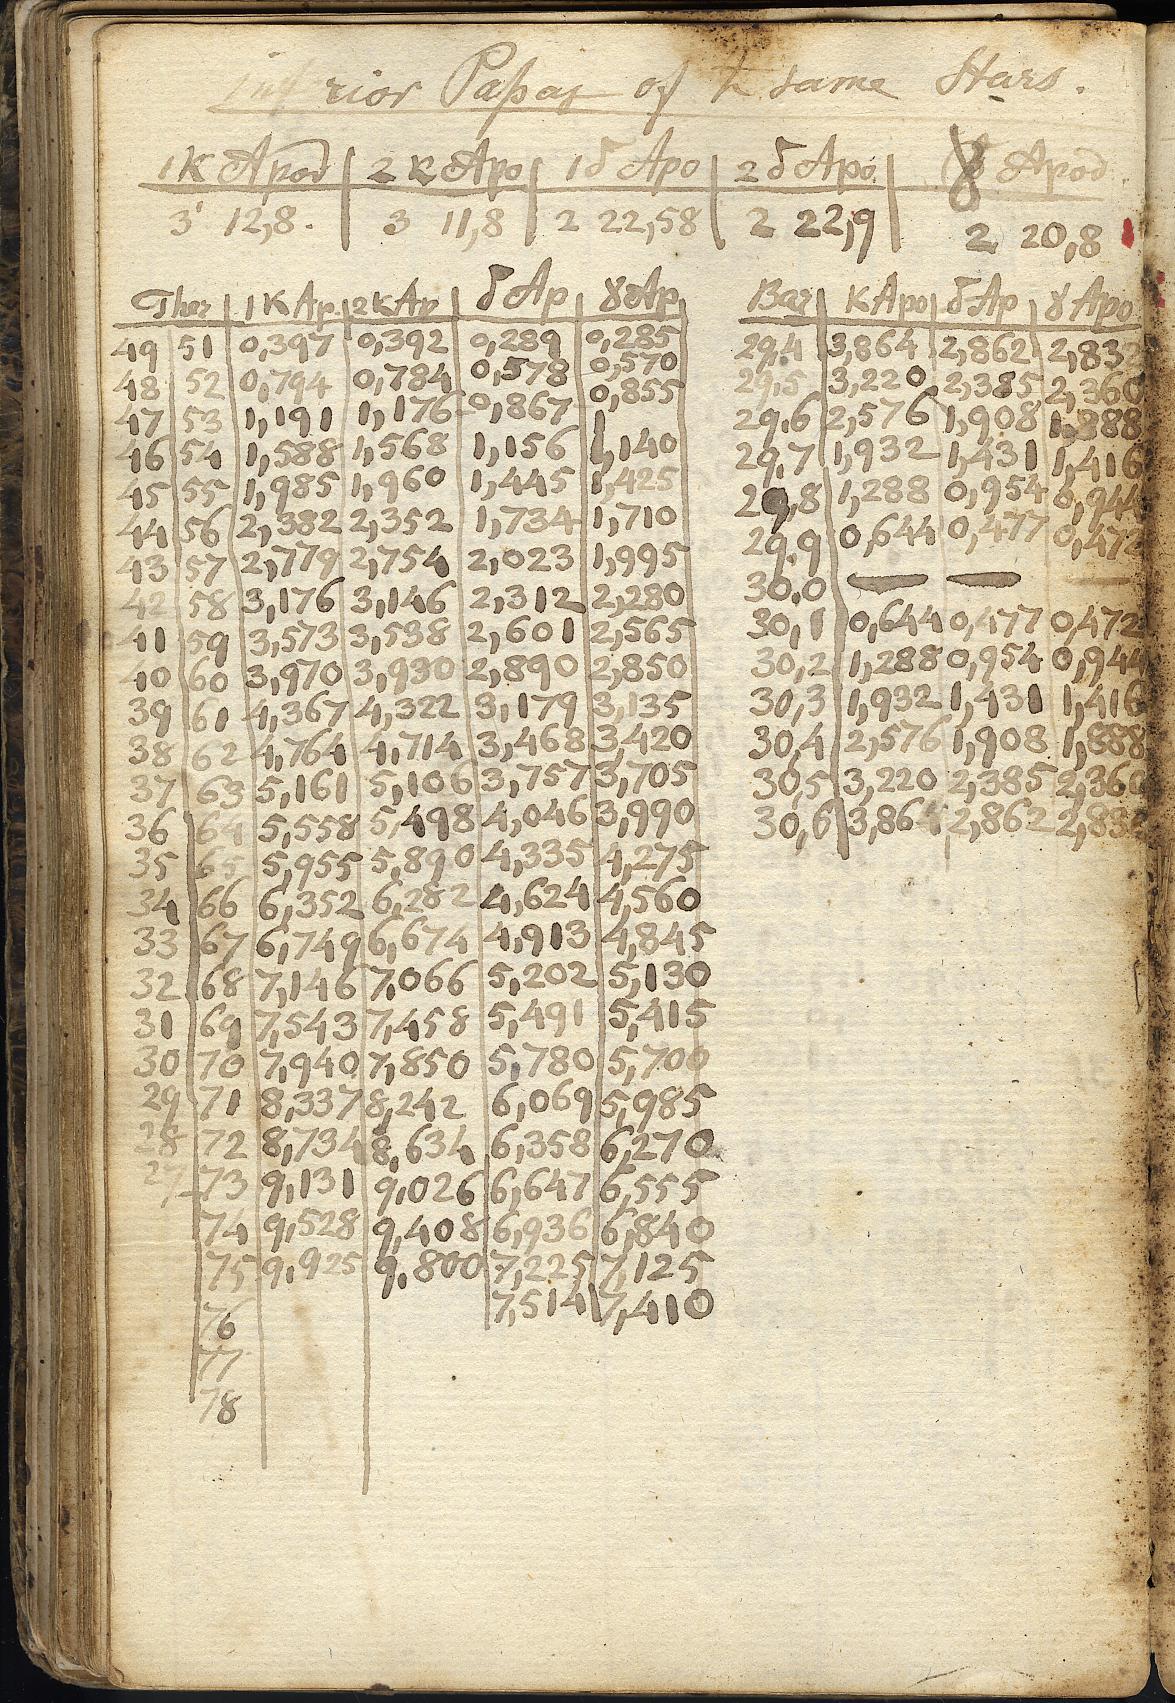 Inferior Passag of the same Stars.
1 K Apod 2 K Apo 1 δ Apo 2 δ Apo. γ Apod.
3' 12,8. 3 11,8 2 22,58 2 22,9 2 20,8
Ther 1 K Ap 2 K Ap δ Ap γ Ap Bar K Apo δ Ap γ Apo
49 51 0,397 0,392 0,289 0,285 29,4 3,864 2,862 2,832
48 52 0,794 0,784 0,578 0,570 29,5 3,220 2,385 2,360
47 53 1,191 1,176 0,867 0,855 29,6 2,576 1,908 1,888
46 54 1,588 1,568 1,156 1,140 29,7 1,932 1,431 1,416
45 55 1,985 1,960 1,445 1,425 29,8 1,288 0,954 0,944
44 56 2,382 2,352 1,734 1,710 29,9 0,644 0,477 0,472
43 57 2,779 2,754 2,023 1,995 30,0 — — —
42 58 3,176 3,146 2,312 2,280 30,1 0,644 0,477 0,472
41 59 3,573 3,538 2,601 2,565 30,2 1,288 0,954 0,944
40 60 3,970 3,930 2,890 2,850 30,3 1,932 1,431 1,416
39 61 4,367 4,322 3,179 3,135 30,4 2,576 1,908 1,888
38 62 4,764 4,714 3,468 3,420 30,5 3,220 2,385 2,360
37 63 5,161 5,106 3,757 3,705 30,6 3,864 2,862 2,832
36 64 5,558 5,498 4,046 3,990
35 65 5,955 5,890 4,335 4,275
34 66 6,352 6,282 4,624 4,560
33 67 6,749 6,674 4,913 4,845
32 68 7,146 7,066 5,202 5,130
31 69 7,543 7,458 5,491 5,415
30 70 7,940 7,850 5,780 5,700
29 71 8,337 8,242 6,069 5,985
28 72 8,734 8,634 6,358 6,270
27 73 9,131 9,026 6,647 6,555
74 9,528 9,408 6,936 6,840
75 9,925 9,800 7,225 7,125
76 7,514 7,410
77
78